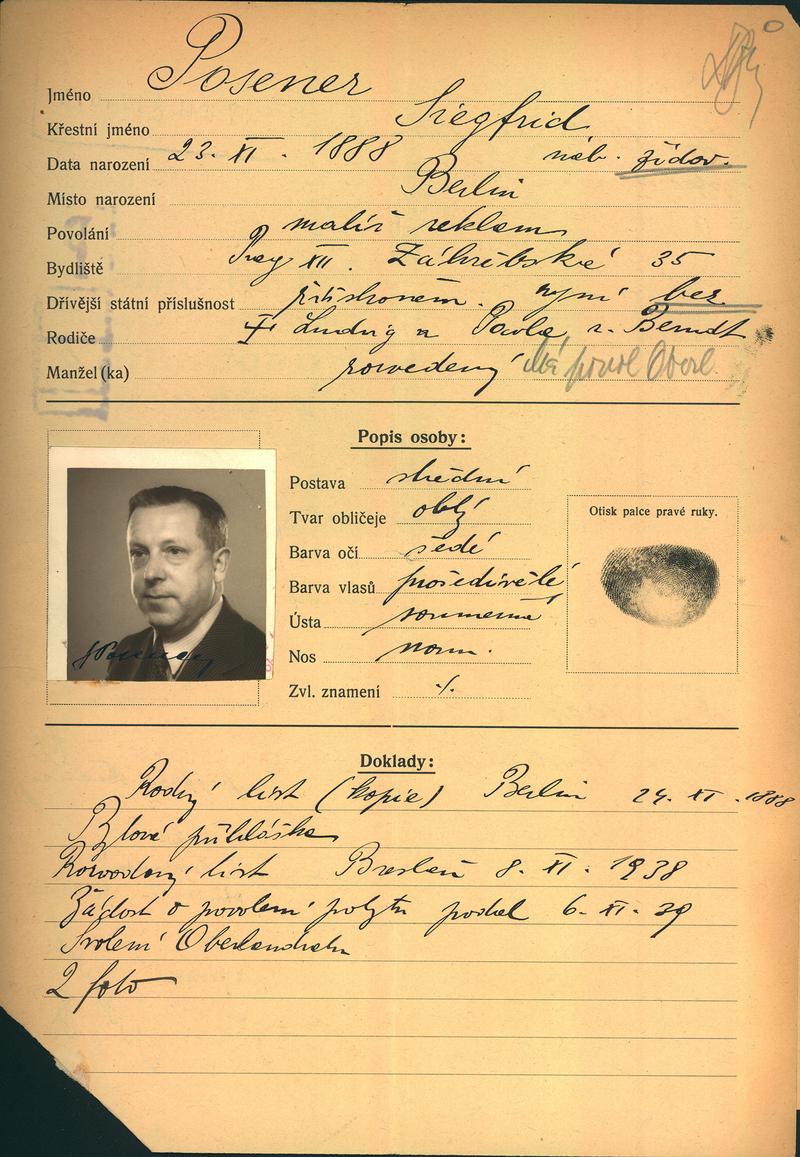 Jméno Posener
Křestní jméno Siegfrid
Data narození 23. XI. 1888 náb. židov.
Místo narození Berlin
Povolání malíř reklam
Bydliště Prag XII. Záhřebské 35
Dřívější státní příslušnost říškoněm. nyní bez
Rodiče Ludvig a Pavla, r. Berndt
Manžel (ka) rozvedený Má povol Oberl.
Popis osoby:
Postava střední
Tvar obličeje oblý
Barva očí šedé
Barva vlasů prošedivělé
Ústa souměrná
Nos norm.
Zvl. znamení ./.
Otisk palce pravé ruky.
SPosener
Doklady:
Rodný list (kopie) Berlin 24. XI. 1888
Bytová přihláška
Rozvodový list Breslau 8. XI. 1938
Žádost o povolení pobytu podal 6. XI. 39
Svolení Oberlandratu
2 foto